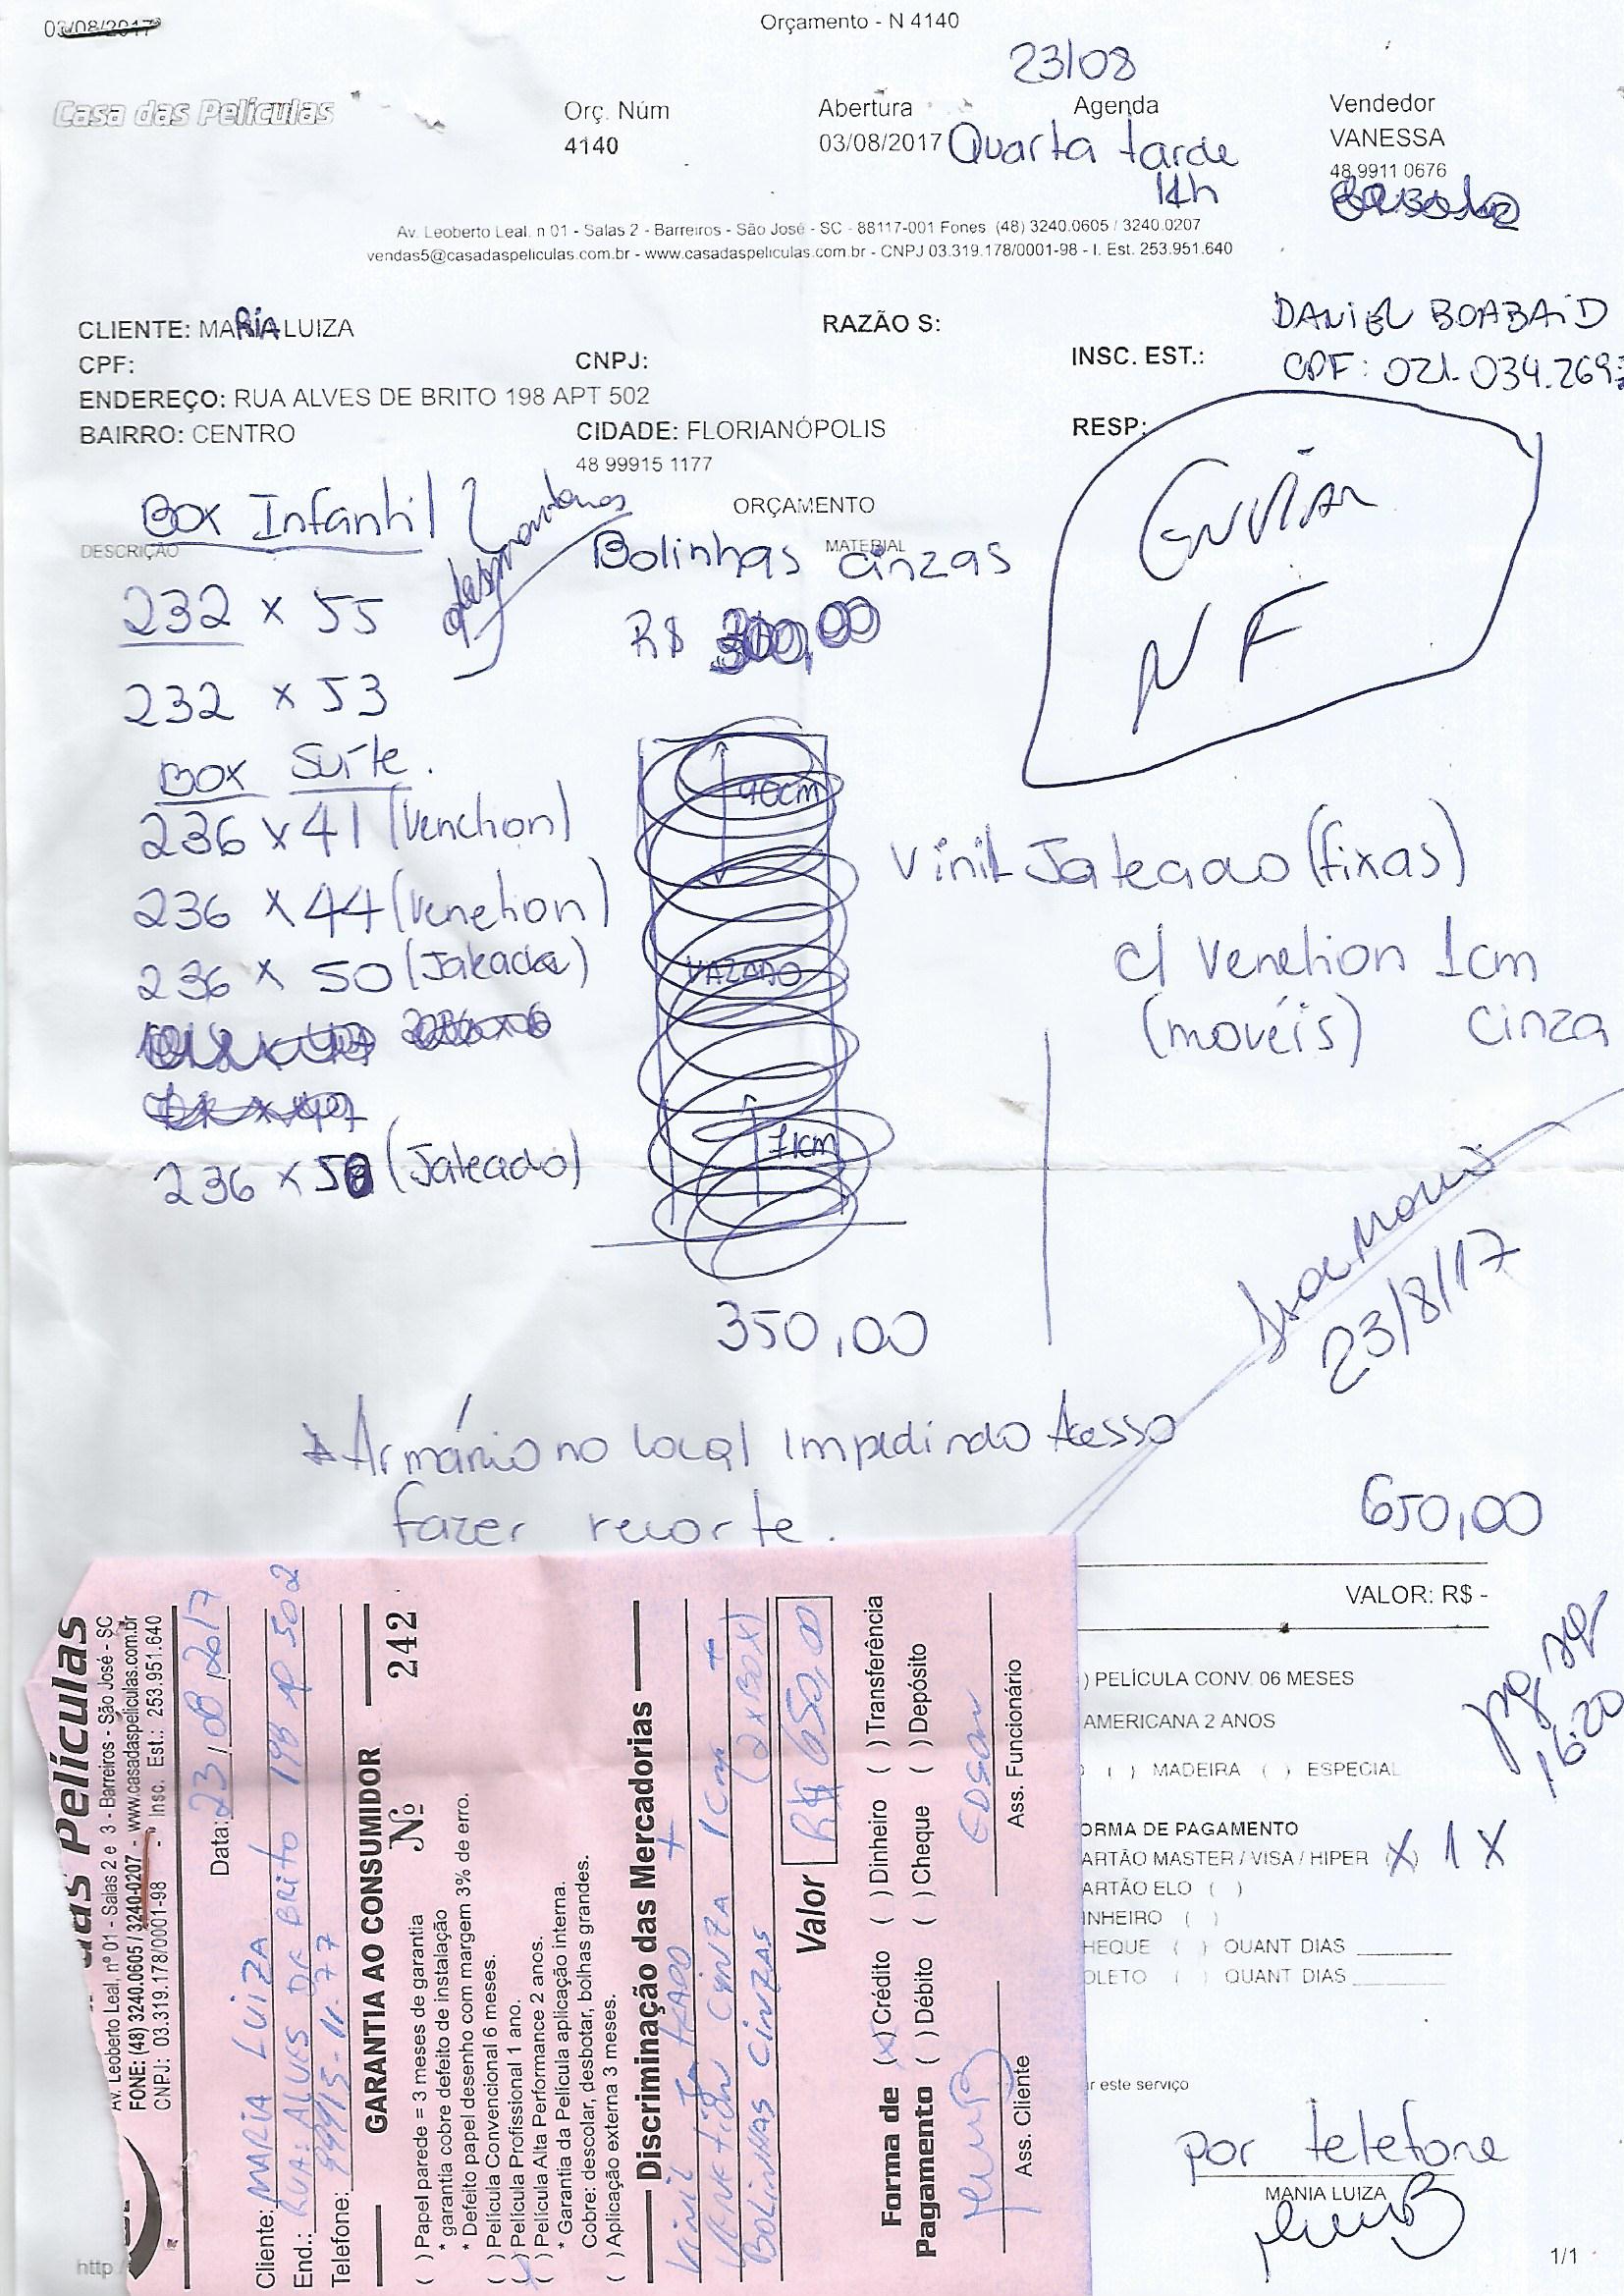 03/08/2017
Orçamento - N 4140
23/08
Casa das Películas
Orç. Núm
4140
Abertura
03/08/2017
Agenda
Quarta tarde
14h
Vendedor
VANESSA
48 9911 0676
Av. Leoberto Leal, n 01 - Salas 2 - Barreiros - São José - SC - 88117-001 Fones (48) 3240.0605 / 3240.0207
vendas5@casadaspeliculas.com.br - www.casadaspeliculas.com.br - CNPJ 03.319.178/0001-98 - I. Est. 253.951.640
CLIENTE: MARIA LUIZA
RAZÃO S:
DANIEL BOABAID
CPF:
CNPJ:
INSC. EST.:
CPF: 021.034.269
ENDEREÇO: RUA ALVES DE BRITO 198 APT 502
BAIRRO: CENTRO
CIDADE: FLORIANÓPOLIS
RESP:
48 99915 1177
Enviar
NF
Box Infantil
ORÇAMENTO
DESCRIÇÃO
MATERIAL
Bolinhas cinzas
232 x 55
R$ 300,00
232 x 53
Box Suíte.
236 x 41 (Venetion)
236 x 44 (Venetion)
236 x 50 (Jateado)
236 x 50 (Jateado)
90cm
VAZADO
71cm
Vinil Jateado (fixas)
c/ Venetion 1cm
(movéis) cinza
350,00
23/8/17
* Armário no local Impedindo Acesso
fazer recorte.
650,00
VALOR: R$ -
) PELÍCULA CONV. 06 MESES
AMERICANA 2 ANOS
( ) MADEIRA ( ) ESPECIAL
16:20
ORMA DE PAGAMENTO
ARTÃO MASTER / VISA / HIPER (X) 1X
ARTÃO ELO ( )
INHEIRO ( )
HEQUE ( ) QUANT DIAS
OLETO ( ) QUANT DIAS
r este serviço
por telefone
MANIA LUIZA
1/1
http
das Películas
Av. Leoberto Leal, nº 01 - Salas 2 e 3 - Barreiros - São José - SC
FONE: (48) 3240.0605 / 3240-0207 - www.casadaspeliculas.com.br
CNPJ: 03.319.178/0001-98 - Insc. Est.: 253.951.640
Data: 23/08/2017
Cliente: MARIA LUIZA
End.: RUA: ALVES DE BRITO 198 AP 502
Telefone: 99915-11.77
GARANTIA AO CONSUMIDOR
Nº 242
( ) Papel parede = 3 meses de garantia
* garantia cobre defeito de instalação
* Defeito papel desenho com margem 3% de erro.
( ) Película Convencional 6 meses.
( ) Película Profissional 1 ano.
( ) Película Alta Performance 2 anos.
* Garantia da Película aplicação interna.
Cobre: descolar, desbotar, bolhas grandes.
( ) Aplicação externa 3 meses.
Discriminação das Mercadorias
Vinil Jateado +
Venetion Cinza 1cm +
Bolinhas Cinzas (2 x BOX)
Valor R$ 650,00
Forma de Pagamento
(x) Crédito ( ) Dinheiro ( ) Transferência
( ) Débito ( ) Cheque ( ) Depósito
EDSON
Ass. Cliente
Ass. Funcionário